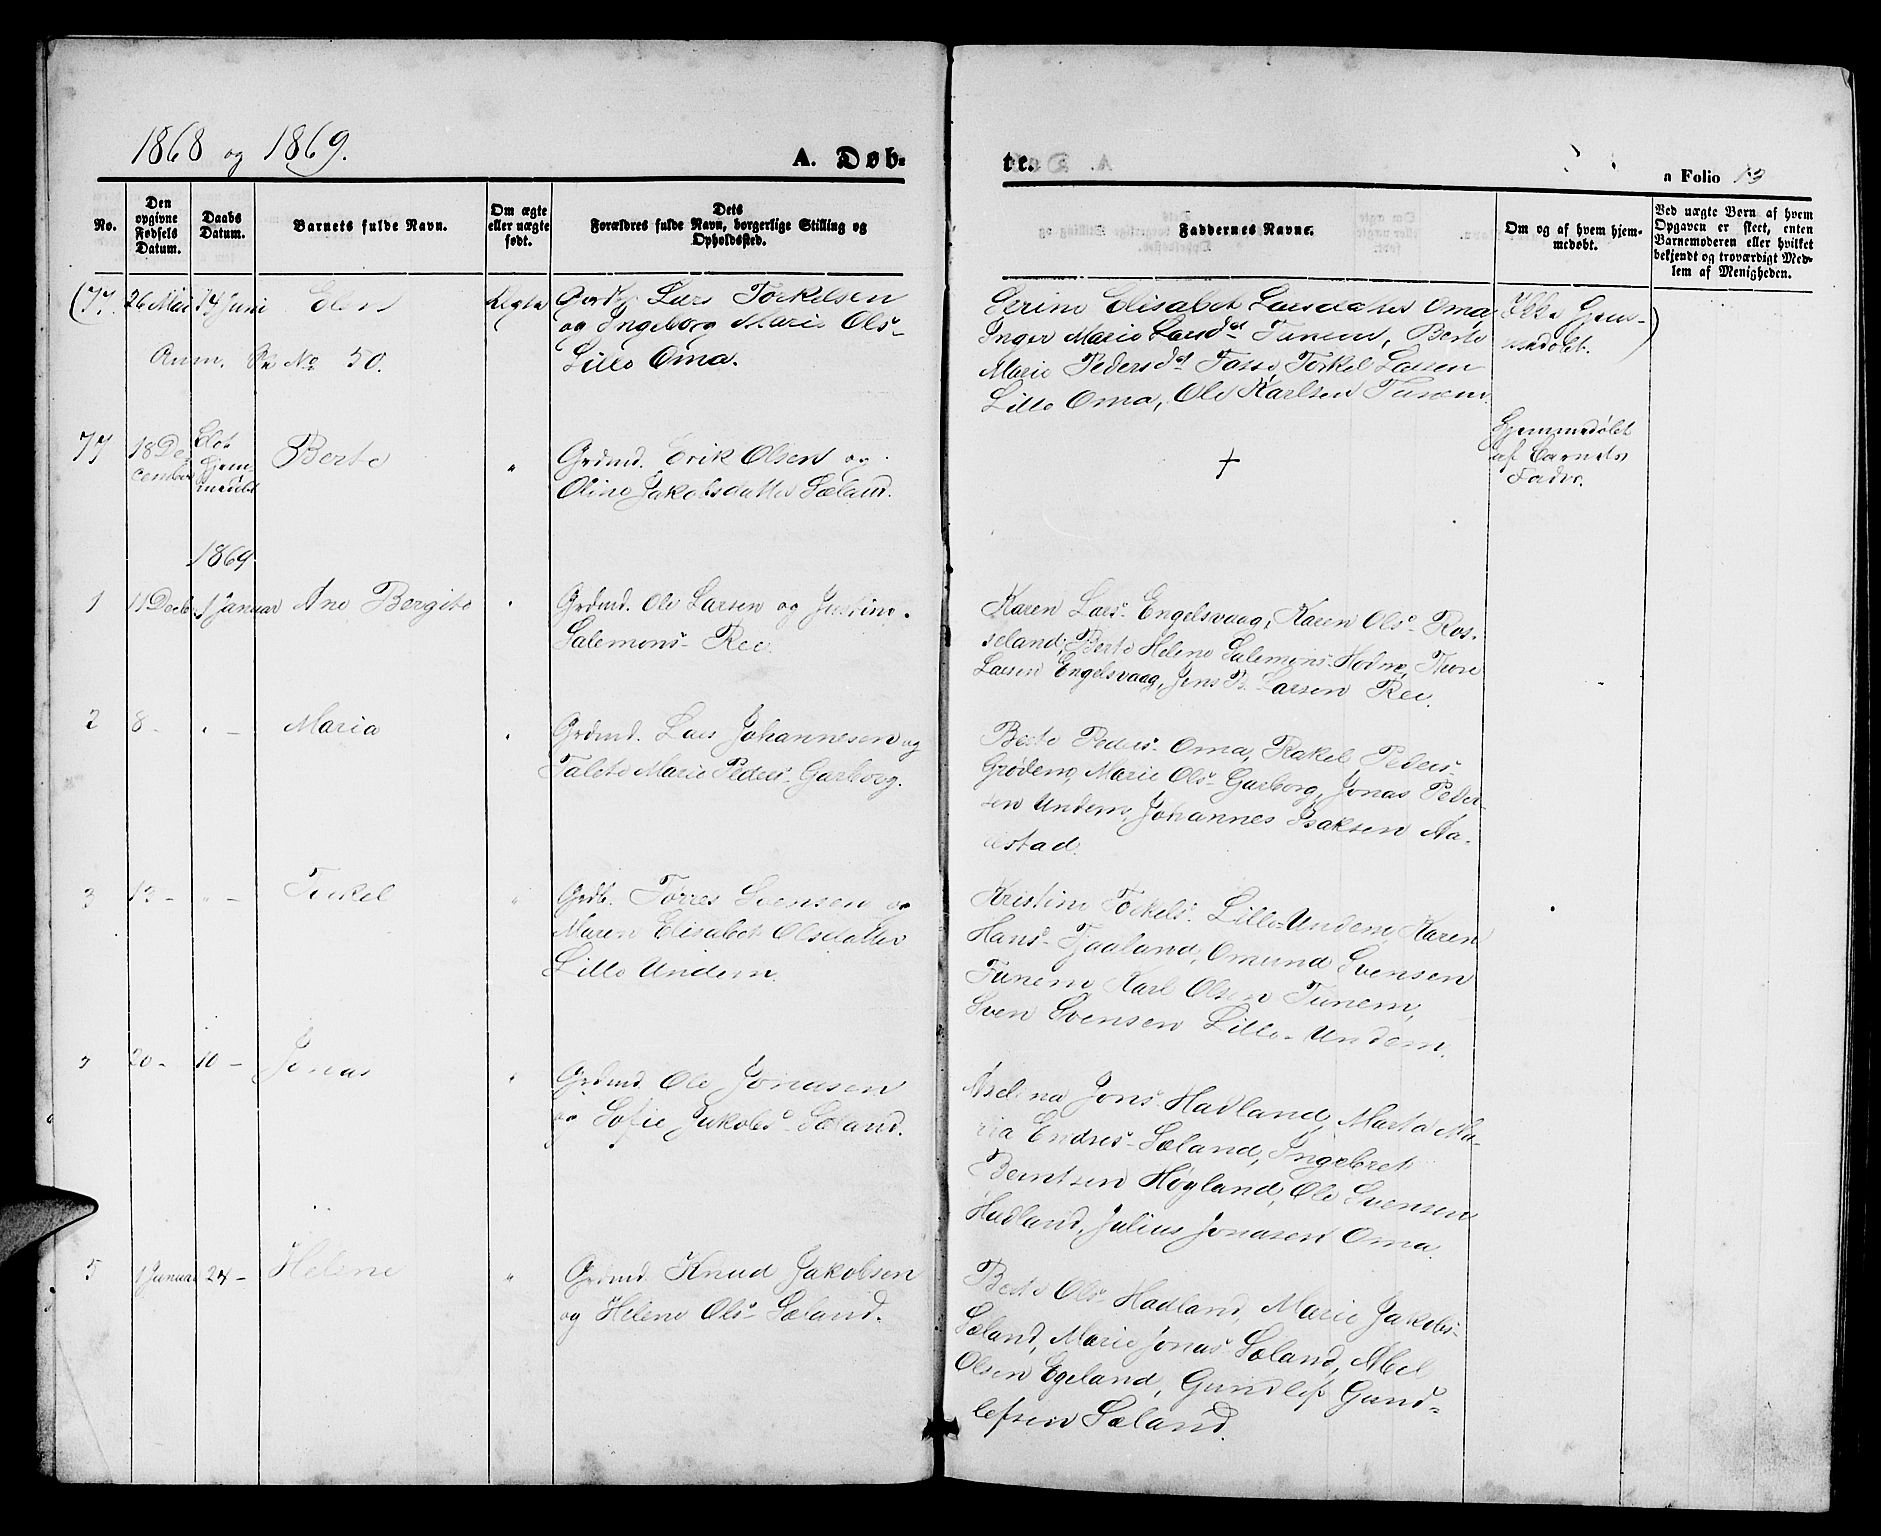 1868 og 1869.
A. Døb-
te.
Folio 13
No.
Den opgivne Fødsels Datum.
Daabs Datum.
Barnets fulde Navn.
Om ægte eller uægte født.
Dets Forældres fulde Navn, borgerlige Stilling og Opholdssted.
Faddernes Navne.
Om og af hvem hjemmedøbt.
Ved uægte Børn af hvem Opgaven er skeet, enten Barnemoderen eller hvilket bekjendt og troværdigt Medlem af Menigheden.
(77. 26 Mai 14 Juni Elen Ægte Gordbr. Lars Torkelsen
og Ingeborg Marie Ols-
Lille Oma.
Anm. No. 50.
Serine Elisabet Larsdatter Oma
Inger Marie Larsdt Tunem, Berte
Marie Pedersdt Fosse, Torkel Larsen
Lille Oma, Ole Karlsen Tunem.
Ikke Hjem-
medøbt. )
77 18 De-
cember
Blot
hjem-
medøbt
Berte " Grdmd. Erik Olsen og
Oline Jakobsdatter Sæland.
+
Hjemmedøbt
af Barnets
Fader.
1869.
1 11 Decbr. 1 Januar Ane Bergite " Grdmd. Ole Larsen og Justine
Salemons- Ree.
Karen Lars- Engelsvaag, Karen Ols- Ros-
seland, Berte Helene Salemons- Hodne, Thore
Larsen Engelsvaag, Jens B. Larsen Ree.
2 8 - " - Maria " Grdmd. Lars Johannesen og
Talete Marie Peders- Garborg.
Berte Peders- Oma, Rakel Peders-
Grødem, Marie Ols- Garborg, Jonas Peder-
sen Undem, Johannes Isaksen Aa-
restad.
3 13 - " - Torkel " Grdb. Tørres Svensen og
Maren Elisabet Olsdatter
Lille Undem.
Kristine Torkels- Lille-Undem, Karen
Hans- Tjaaland, Omund Svensen
Tunem, Karl Olsen Tunem,
Sven Svensen Lille-Undem.
20 - 10 - Jonas " Grdmd. Ole Jonasen
og Sofie Jakobs- Sæland.
Aselina Jons- Hadland, Marta Ma-
ria Endres- Sæland, Ingebret
Berntsen Høyland, Ole Svensen
Hadland, Julius Jonasen Oma.
5 1 Januar 24 - Helene " Grdmd. Knud Jakobsen
og Helene Ols- Sæland.
Berte Ols- Hadland, Marie Jakobs-
Sæland, Marie Jonas- Sæland, Abel
Olsen Egeland, Gundlef Gund-
lefsen Sæland.